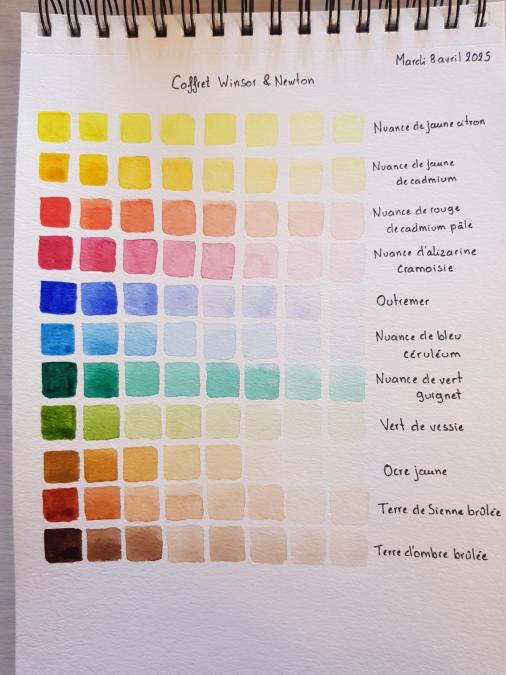 Mardi 8 avril 2025
Coffret Winsor & Newton
Nuance de jaune citron
Nuance de jaune
de cadmium
Nuance de rouge
de cadmium pâle
Nuance d'alizarine
cramoisie
Outremer
Nuance de bleu
céruléum
Nuance de vert
guignet
Vert de vessie
Ocre jaune
Terre de Sienne brûlée
Terre d'ombre brûlée